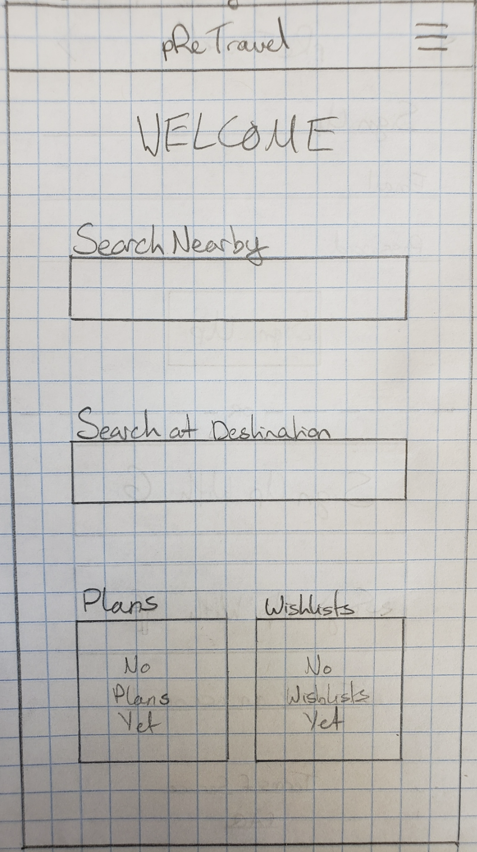 pRe Travel
WELCOME
Search Nearby
Search at Destination
Plans
Wishlists
No
Plans
Yet
No
Wishlists
Yet